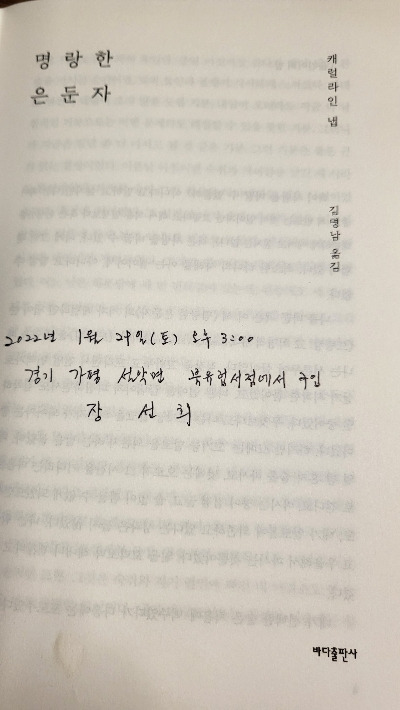 명랑한
은둔자
캐럴라인 냅
김명남 옮김
2022년 1월 29일(토) 오후 3:00
경기 가평 설악면 북유럽서점에서 구입
장선희
바다출판사